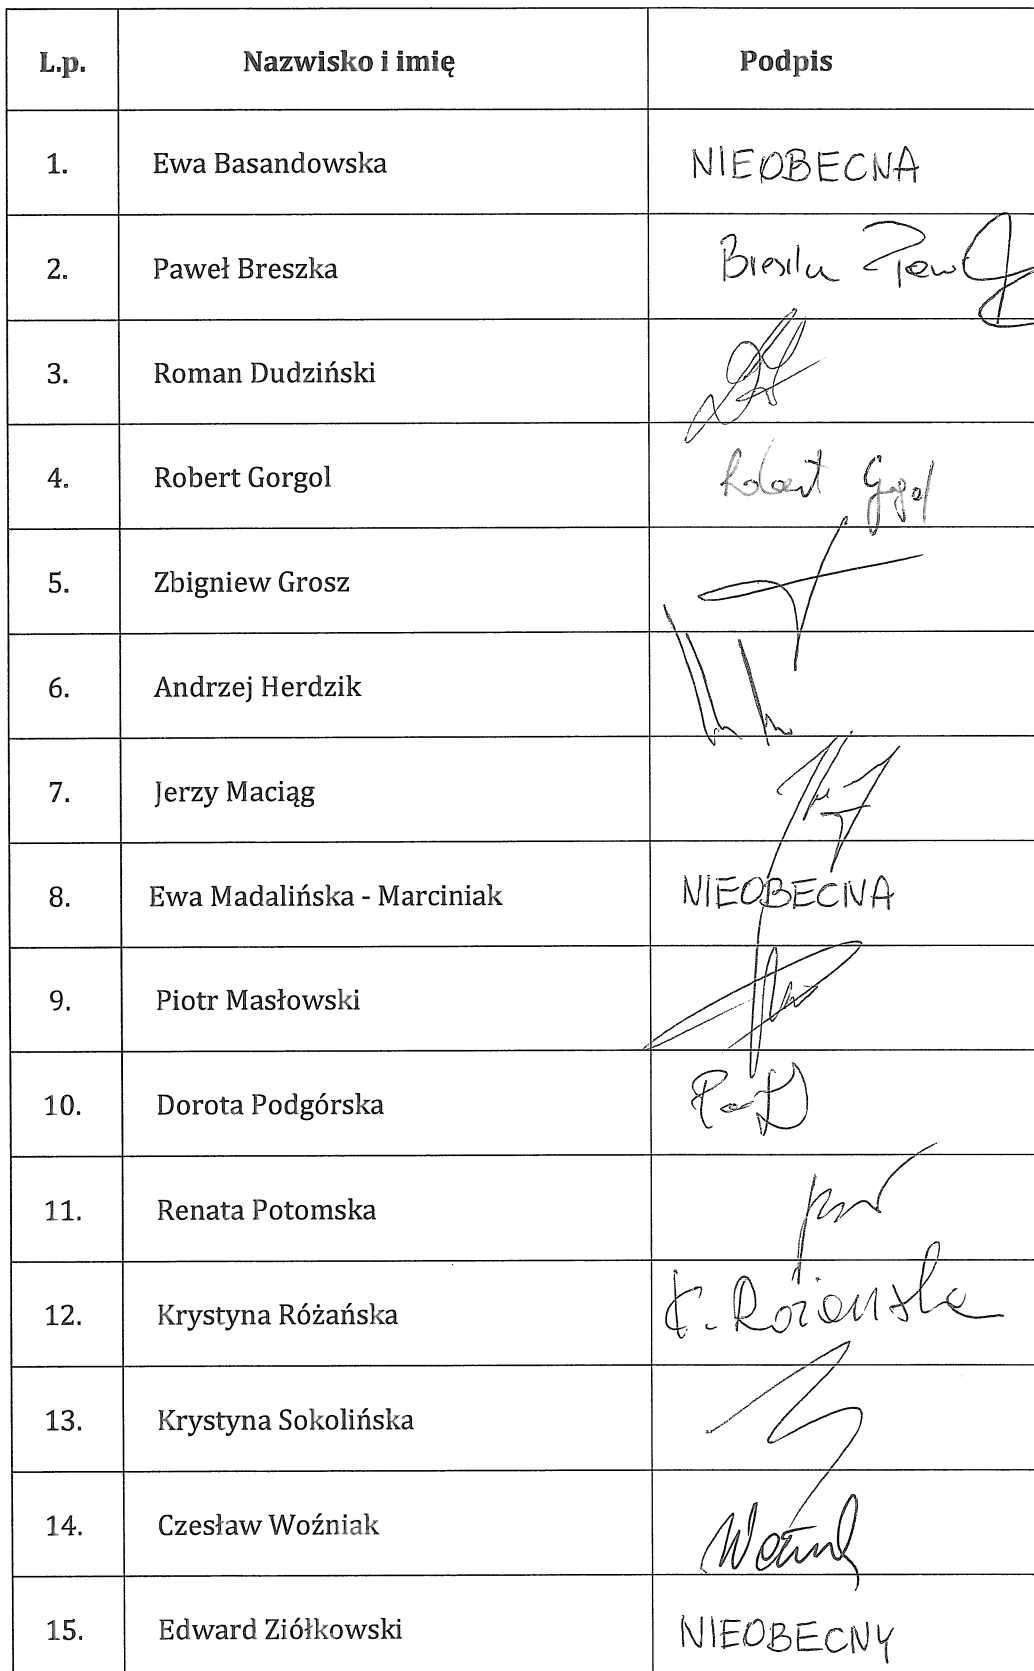 L.p. Nazwisko i imię Podpis
1. Ewa Basandowska NIEOBECNA
2. Paweł Breszka
3. Roman Dudziński
4. Robert Gorgol Robert Gorgol
5. Zbigniew Grosz
6. Andrzej Herdzik
7. Jerzy Maciąg
8. Ewa Madalińska - Marciniak NIEOBECNA
9. Piotr Masłowski
10. Dorota Podgórska
11. Renata Potomska
12. Krystyna Różańska K. Różańska
13. Krystyna Sokolińska
14. Czesław Woźniak
15. Edward Ziółkowski NIEOBECNY